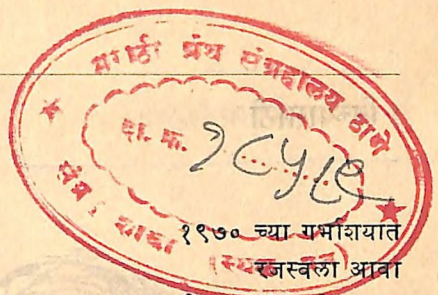 मराठी ग्रंथ संग्रहालय ठाणे
दा. क्र.
शाखा
१९७० च्या गर्भाशयात
रजस्वला आवा